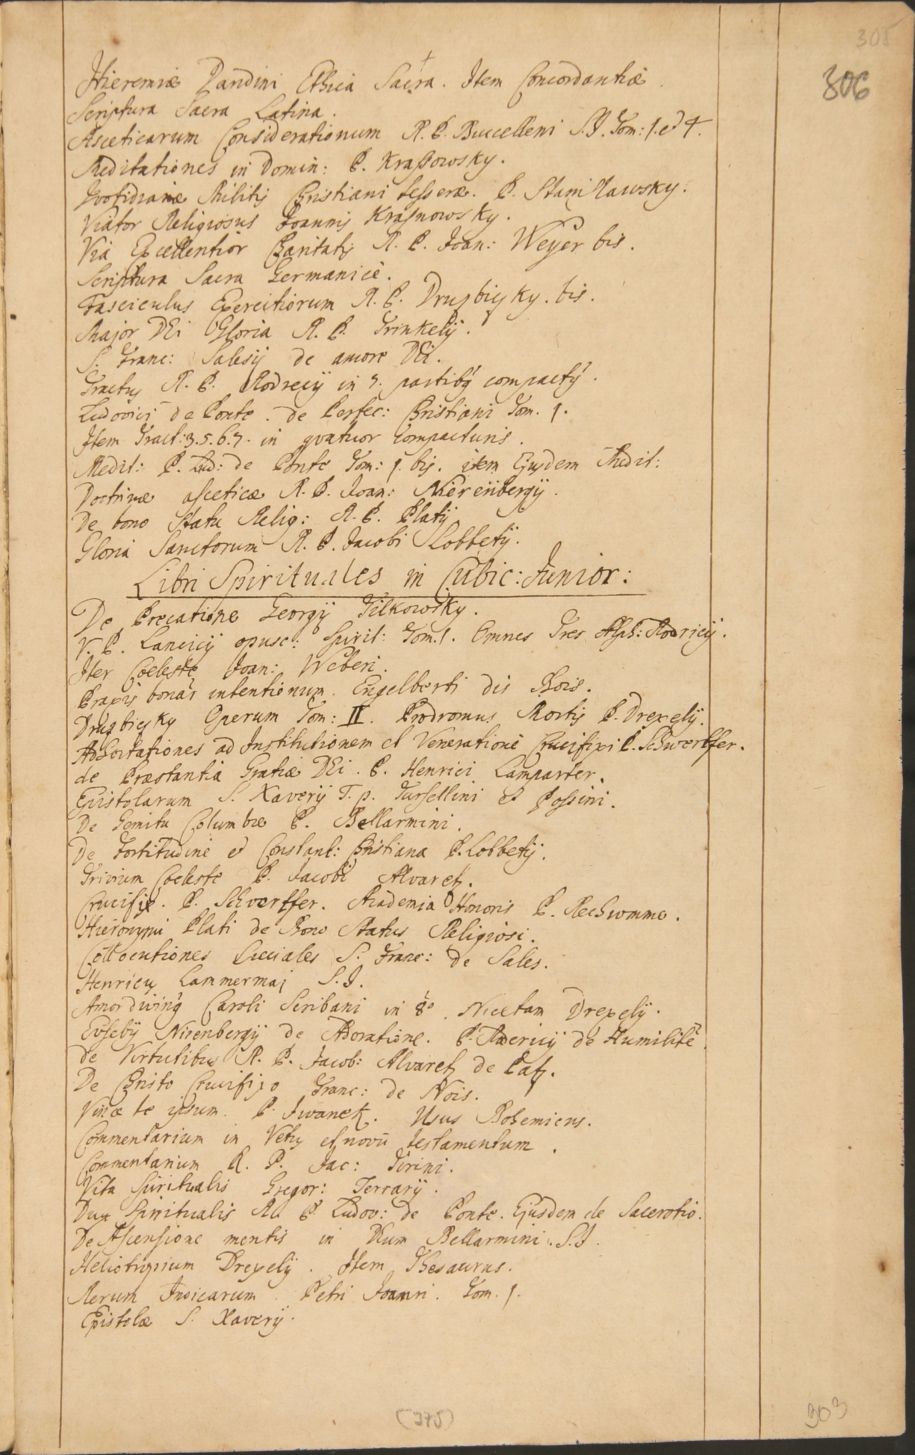 305
306
Hieremiæ Dandini Ethica Sacra. Item Concordantiæ
Scriptura Sacra Latina.
Asceticarum Considerationum R. P. Buccelleni S.J. Tom: 1. et 4.
Meditationes in Domin: P. Kraßowsky.
Quotidianæ Militis Christiani tesseræ. P. Stanislawsky.
Viator Religiosus Joannis Krasnowsky.
Via Excellentior Charitatis R. P. Joan: Weyer bis.
Scriptura Sacra Germanicè.
Fasciculus Exercitiorum R. P. Druzbicky. bis.
Major DEi Gloria R. P. Trinkelij.
S. Franc: Salesij de amore DEi.
R. P. Rodrecij in partibus
Ludovici de Ponte. de Perfec: Christiani Tom. 1.
Item Tract: 3. 5. 6. 7. in quatuor Compacturis.
Medit: P. Lud: de Ponte Tom: 1. bis. item Ejusdem Medit:
Doctrinæ asceticæ R. P. Joan: Nierenbergij.
De bono Statu Relig: R. P. Platij
Gloria Sanctorum R. P. Jacobi Lobbetij.
Libri Spirituales in Cubic: Junior:
De Precatione Georgij Tilkowsky.
V. P. Lancicij opusc: Spirit: Tom 1. Omnes Tres Alph: Rodricij.
Iter Coeleste Joan: Weberi.
Praxis bonar intentionum. Engelberti des Bois.
Druzbicky Operum Tom: II. Prodromus Mortis P. Drexelij.
Adhortationes ad Institutionem et Veneratione Crucifixi P. Schwertfer.
de Præstantia Gratiæ DEi. P. Henrici Lamparter.
Epistolarum S. Xaverij T. p. Tursellini et Possini.
De Gemitu Columbæ P. Bellarmini.
De Fortitudine et Constant: Christiana P. Lobbetij.
Trivium Coeleste P. Jacobi Alvarez.
Crucifix. P. Schvertfer. Academia Honoris P. Rechwomme.
Hieronymi Plati de Bono Status Religiosi.
S. Franc: de Sales.
Henricus Lammerman S.J.
Amor divinus Caroli Scribani in 8vo. Nicetam Drexelij.
Eusebij Nirenbergij de Adoratione. P. de Humilitate.
de Virtutibus R. P. Jacob: Alvarez de Paz.
De Christo Crucifixo Franc: de Nois.
Vince te ipsum. P. Iwanek. Usus Bohemicus.
Commentarium in Vetus et novū testamentum.
Commentarium R. P. Jac: Tirini.
Vita Spiritualis Gregor: Ferrarij.
Dux Spiritualis R. P. Ludov: de Ponte. Ejusdem de Sacerotio.
De Ascensione mentis in DEum Bellarmini. S.J.
Heliotropium Drexelij. Item Thesaurus.
Rerum Indicarum Petri Joanri. Tom. 1.
Epistolæ S. Xaverij.
(375)
303